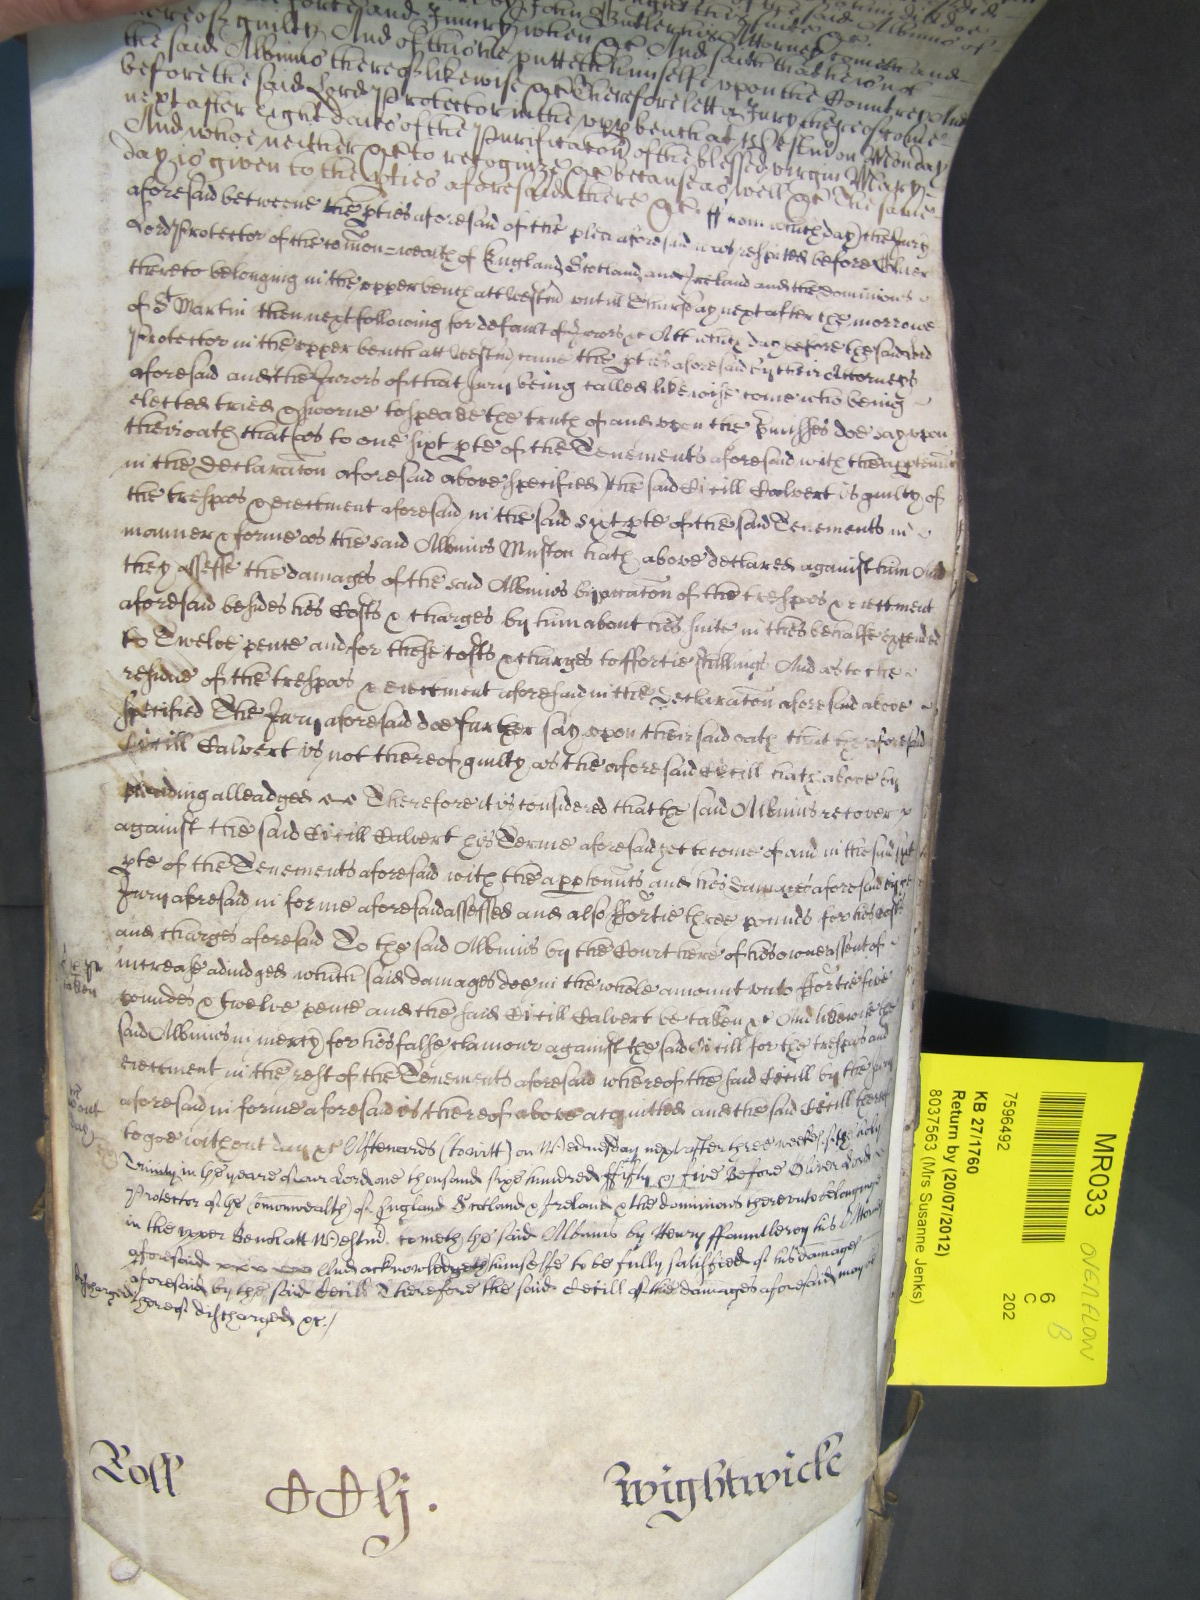 by John Butler his Attorney cometh and
force and Injury when &c And saith that hee is not
thereof guilty And of this hee putteth himselfe upon the Countrey And
the said Albinus thereof likewise &c Therefore lett a Jury thereof come
before the said Lord Protector in the upp bench at Westm on Monday
next after eight daies of the Purificacon of the blessed virgin Mary
And who neither &c to recognize &c because as well &c The same
day is given to the pties aforesaid there &c ff rom which day the Jury
aforesaid betweene the pties aforesaid of the plea aforesaid was respited before Oliver
Lord Protector of the Comon wealth of England Scotland and Ireland and the dominions
thereto belonging in the upper bench att Westm until Thursday next after the morrow
of St Martin then next following for default of Jurors &c Att which day before the said Lord
Protector in the upper bench att Westm came the pties aforesaid by their Attorneys
aforesaid and the Jurors of that Jury being called likewise come who being
elected tried & sworne to speake the truth of and upon the pmisses doe say upon
their oath that as to one sixt pte of the Tenements aforesaid with the apptennts
in the Declaracon aforesaid above specified the said Cecill Calvert is guilty of
the trespas & eiectment aforesaid in the said sixt pte of the said Tenements in
manner & forme as the said Albinus Muston hath above declared against him And
they assesse the damages of the said Albinus by occacon of the trespas & eiectment
aforesaid besides his Costs & charges by him about his suite in this behalfe expended
to Twelve pence and for those costs & charges to ffortie shillings And as to the
residue of the trespas & eiectment aforesaid in the Declaracon aforesaid above
specified The Jury aforesaid doe further say upon their said oath that the aforesaid
Cecill Calvert is not thereof guilty as the aforesaid Cecill hath above by
pleading alleadged Therefore it is considered that the said Albinus recover
against the said Cecill Calvert his Terme aforesaid yet to come of and in the said sixt
pte of the Tenements aforesaid with the apptennts and his damages aforesaid by the
Jury aforesaid in forme aforesaid assessed and also ffortie three pounds for his costs
and charges aforesaid To the said Albinus by the Court here of his owne assent of
increase adiudged which said damages doe in the whole amount unto ffortie five
pounds & twelve pence and the said Cecill Calvert be taken &c And likewise the
said Albinus in mercy for his false clamour against the said Cecill for the trespas and
eiectment in the rest of the Tenements aforesaid whereof the said Cecill by the Jury
aforesaid in forme aforesaid is thereof above acquitted and the said Cecill thereof
to goe without day &c Afterwards (to witt) on Wednesday next after three weekes of the holy
Trinity in the yeare of our Lord one thousand sixe hundred ffifty & five Before Oliver Lord
Protector of the Comonwealth of England Scotland & Ireland & the dominions thereunto belonginge
in the upper Bench att Westm. cometh the said Albinus by Henry ffauntleroy his Attorney
aforesaid And acknowledgeth himselfe to be fully satisfied of his damages
aforesaid by the said Cecill Therefore the said Cecill of the damages aforesaid may be
thereof discharged &c./
taken
without
day
discharged
Roll
CClj.
Wightwicke
MR033
OVERFLOW
6
C
B
202
7596492
KB 27/1760
Return by (20/07/2012)
8037563 (Mrs Susanne Jenks)